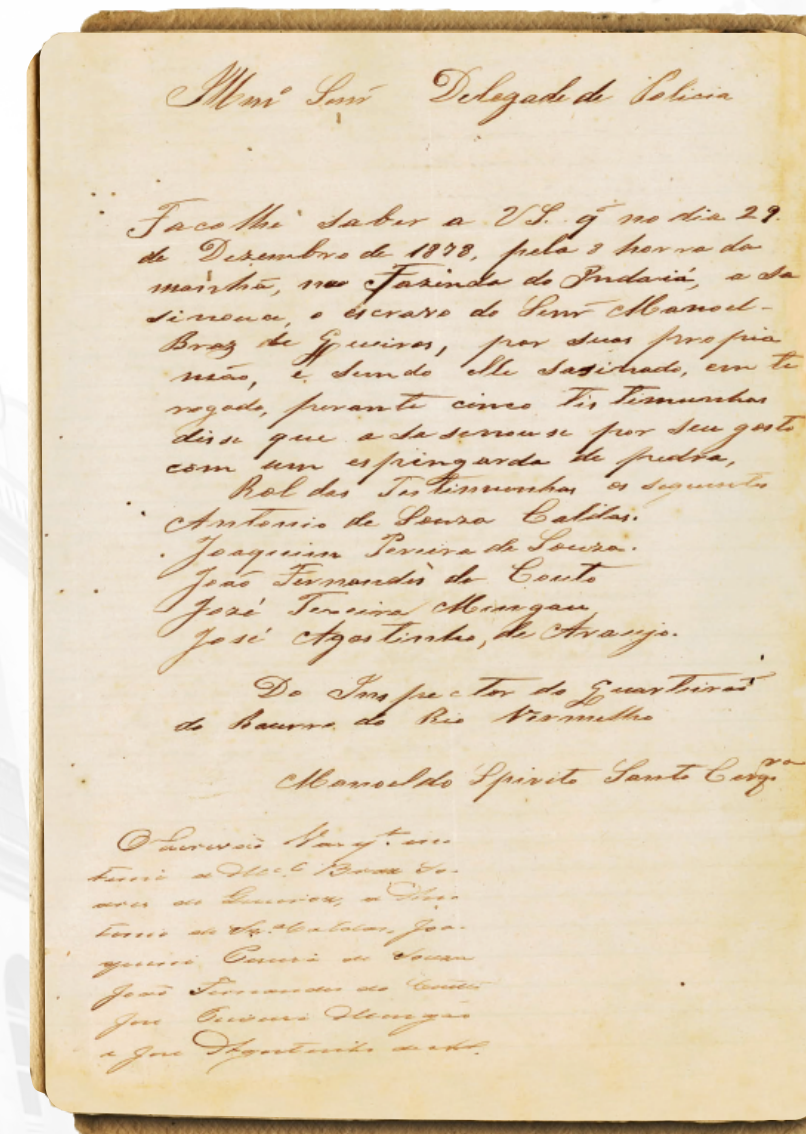 Illmº Senr Delegade de Policia
Faco lhe saber a VS. q̃ no dia 29
de Dezembro de 1878, pela 8 horra da
manhã, na Fazinda do Indaiá, a sa
sinou a, o escravo do Senr Manoel
Braz de Queiros, por suas propia
mão, e sendo elle sasinado, em te
rogado, perante cinco Tis temunhas
dise que a sa senou se por seu gosto
com um espingarda de pedra,
Rol das Testimunhas os seguentes
Antonio de Souza Caldas.
Joaquim Pereira de Souza.
João Fernandes do Couto
Jozé Teceira Mingau
José Agostinho, de Araujo.
Do Inspector do Quarteirão
do Bairro do Rio Vermelho
Manoel do Spirito Santo Cerqra
O Escrivão
a Braz So
ares de Queiroz, a An
tonio de Sza Caldas, Joa
quim Pereira de Souza
João Fernandes do Couto
José Teixeira Mingáo
e José Agostinho